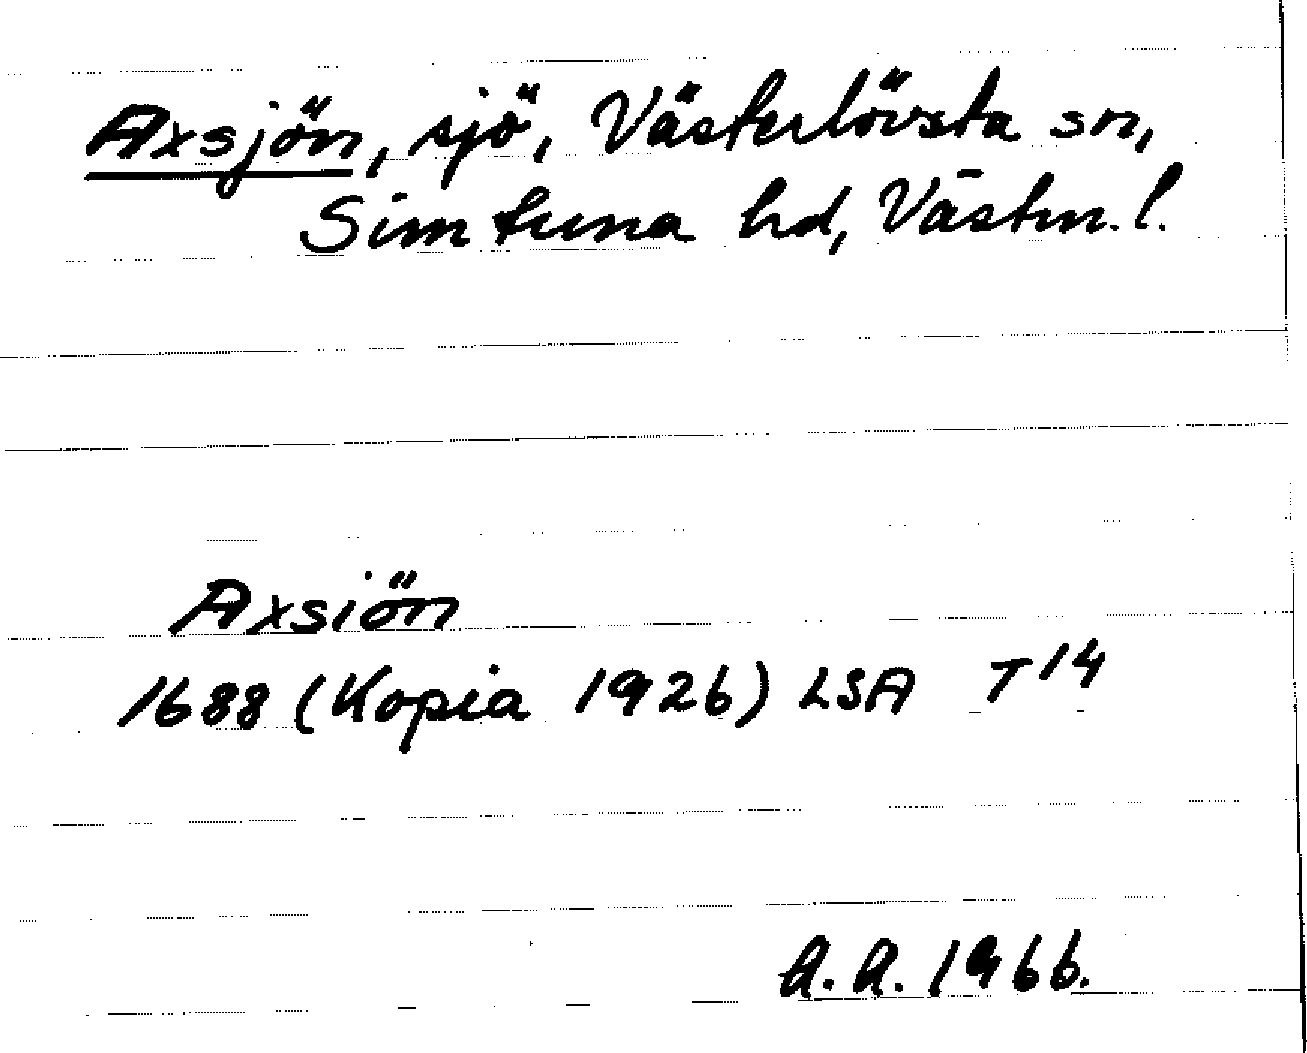 Axsjön, sjö, Västerlövsta sn,
Simtuna hd, Västm. l.
Axsiön
1688 (Kopia 1926) LSA T14
A.A. 1966.